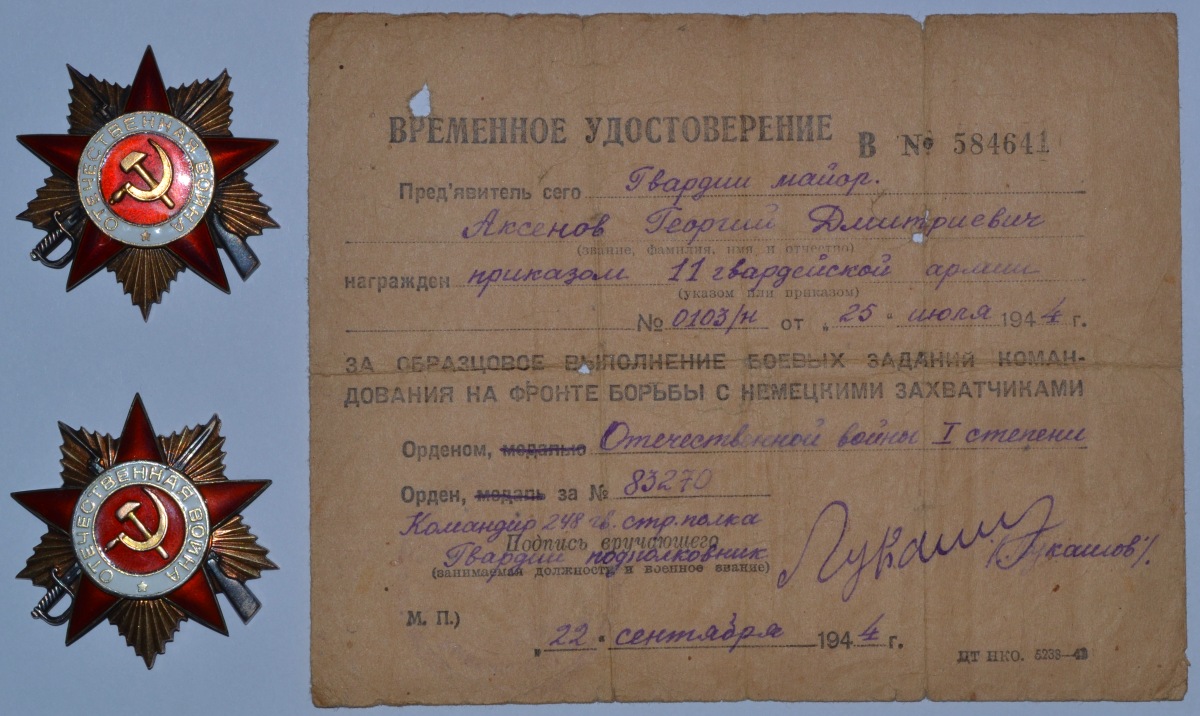 ОТЕЧЕСТВЕННАЯ ВОЙНА
ОТЕЧЕСТВЕННАЯ ВОЙНА
ВРЕМЕННОЕ УДОСТОВЕРЕНИЕ В № 584641
Пред'явитель сего Гвардии майор.
Аксенов Георгий Дмитриевич
(звание, фамилия, имя и отчество)
награжден приказом 11 гвардейской армии
(указом или приказом)
№ 0103/н от „25" июля 1944 г.
ЗА ОБРАЗЦОВОЕ ВЫПОЛНЕНИЕ БОЕВЫХ ЗАДАНИЙ КОМАН-
ДОВАНИЯ НА ФРОНТЕ БОРЬБЫ С НЕМЕЦКИМИ ЗАХВАТЧИКАМИ
Орденом, медалью Отечественной войны I степени
Орден, медаль за № 83270
Командир 248 гв. стр. полка
Подпись вручающего
Гвардии подполковник
(занимаемая должность и военное звание)
М. П.)
„22" сентября 1944 г.
ЦТ НКО. 5238—43